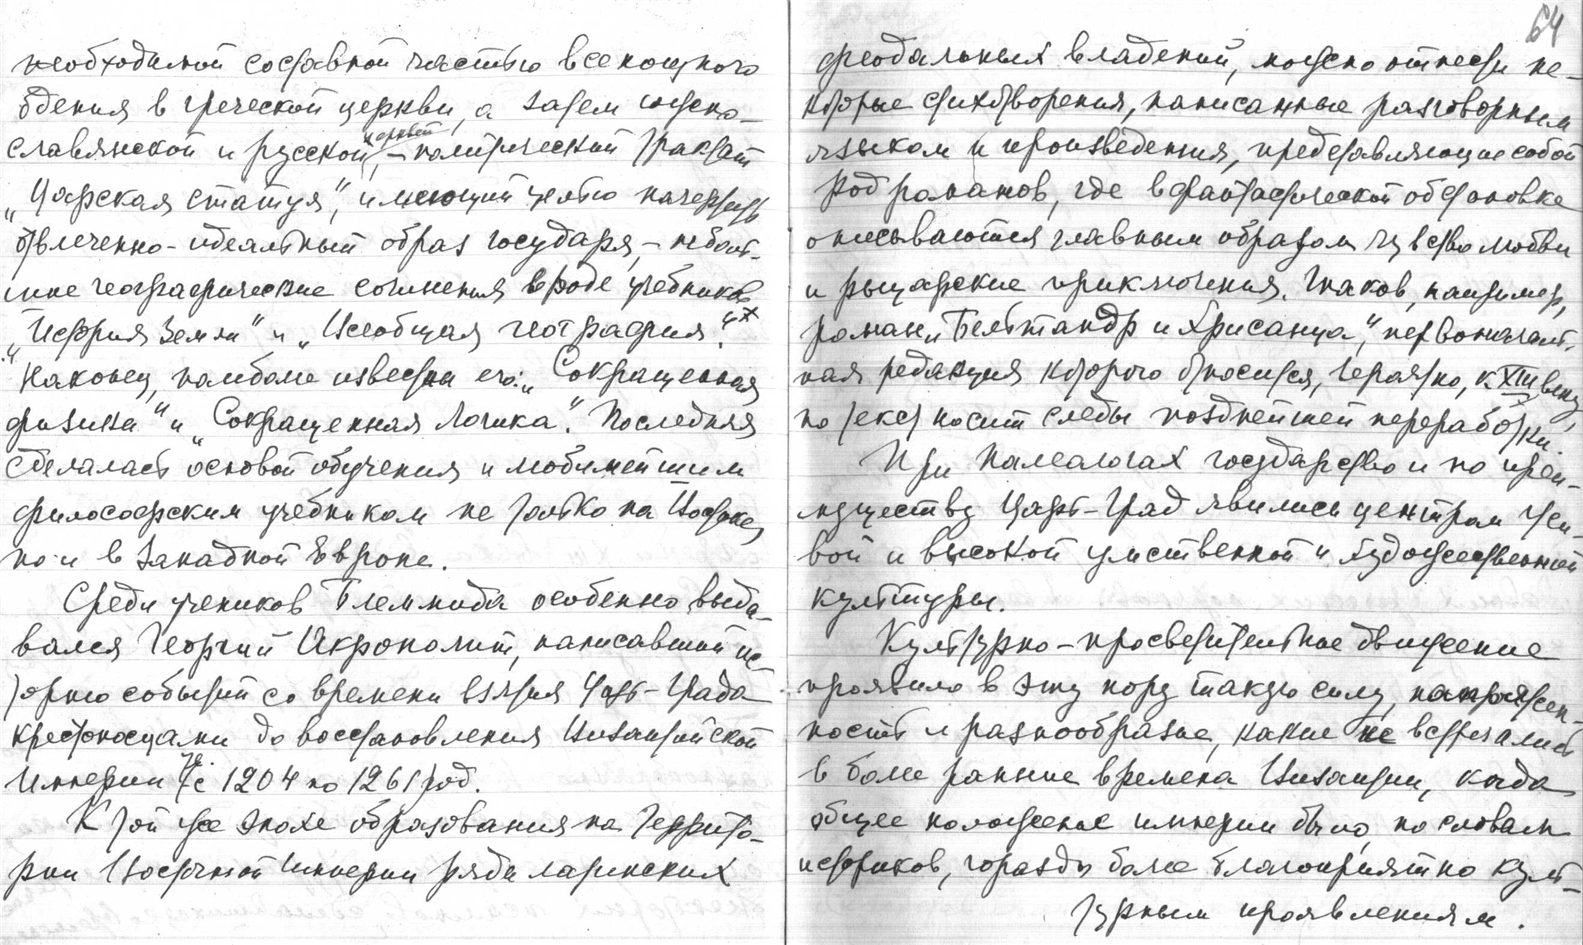 необходимой составной частью всенощного
бдения в греческой церкви, а затем южно-
славянской и русской церквей, – политический трактат
„Царская статуя“, имеющий целью начертать
отвлеченно-идеальный образ государя, – неболь-
шие географические сочинения вроде учебников
„История Земли“ и „Всеобщая география“.
Наконец, наиболее известны его: „Сокращенная
физика“ и „Сокращенная Логика“. Последняя
сделалась основой обучения и любимейшим
философским учебником не только на Востоке,
но и в Западной Европе.
Среди учеников Влеммида особенно выда-
вался Георгий Акрополит, написавший ис-
торию событий со времени взятия Царь-Града
крестоносцами до восстановления Византийской
Империи т.е. с 1204 по 1261 год.
К той же эпохе образования на террито-
рии Восточной Империи ряда латинских
64
феодальных владений, можно отнести не-
которые стихотворения, написанные разговорным
языком и произведения, представляющие собой
род романов, где в фантастической обстановке
описываются главным образом чувство любви
и рыцарские приключения. Таков, например,
роман „Бельтандр и Хрисанца“, первоначаль-
ная редакция которого относится, вероятно, к XIII веку,
но текст носит следы позднейшей переработки.
При Палеологах государство и по преи-
муществу Царь-Град явились центром жи-
вой и высокой умственной и художественной
культуры.
Культурно-просветительное движение
проявило в эту пору такую силу, напряжен-
ность и разнообразие, какие не встречались
в более ранние времена Византии, когда
общее положение империи было, по словам
историков, гораздо более благоприятно куль-
турным проявлениям.